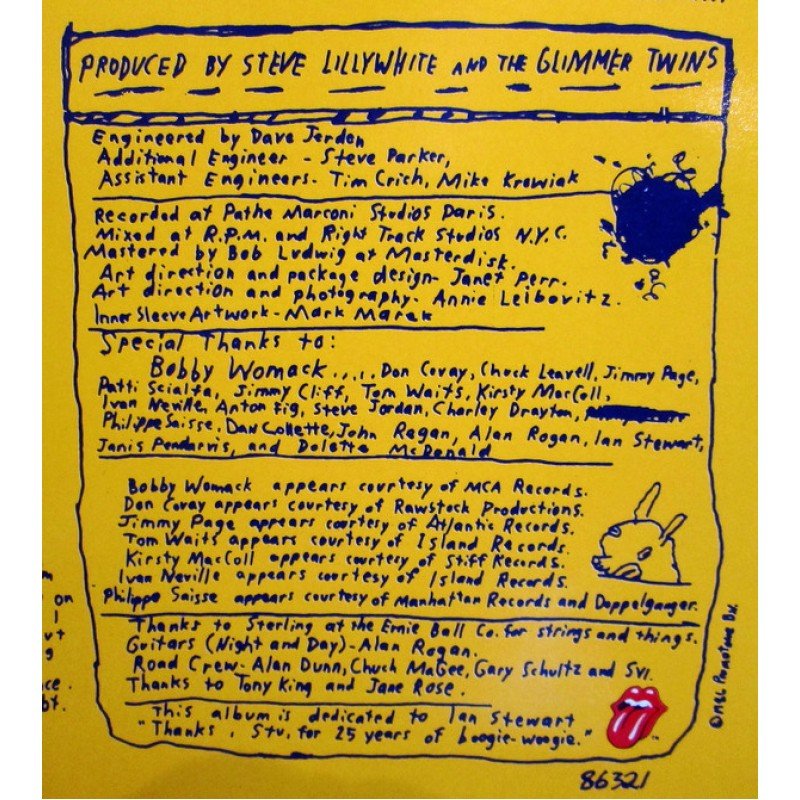 PRODUCED BY STEVE LILLYWHITE AND THE GLIMMER TWINS
Engineered by Dave Jerden
Additional Engineer - Steve Parker,
Assistant Engineers- Tim Crich, Mike Krowiak
Recorded at Pathe Marconi Studios Paris.
Mixed at R.P.M. and Right Track Studios N.Y.C.
Mastered by Bob Ludwig at Masterdisk.
Art direction and package design- Janet Perr.
Art direction and photography- Annie Leibovitz.
Inner Sleeve Artwork - Mark Marek
Special Thanks to:
Bobby Womack..... Don Covay, Chuck Leavell, Jimmy Page,
Patti Scialfa, Jimmy Cliff, Tom Waits, Kirsty MacColl,
Ivan Neville, Anton Fig, Steve Jordan, Charley Drayton,
Philippe Saisse, Dan Collette, John Regan, Alan Rogan, Ian Stewart,
Janis Pendarvis, and Dolette McDonald
Bobby Womack appears courtesy of MCA Records.
Don Covay appears courtesy of Rawstock Productions.
Jimmy Page appears courtesy of Atlantic Records.
Tom Waits appears courtesy of Island Records.
Kirsty MacColl appears courtesy of Stiff Records.
Ivan Neville appears courtesy of Island Records.
Philippe Saisse appears courtesy of Manhattan Records and Doppelganger.
Thanks to Sterling at the Ernie Ball Co. for strings and things.
Guitars (Night and Day) - Alan Rogan.
Road Crew- Alan Dunn, Chuck MaGee, Gary Schultz and Svi.
Thanks to Tony King and Jane Rose.
This album is dedicated to Ian Stewart
"Thanks, Stu. for 25 years of boogie-woogie."
©1986 Promotone BV.
86321
on
ce.
bt.